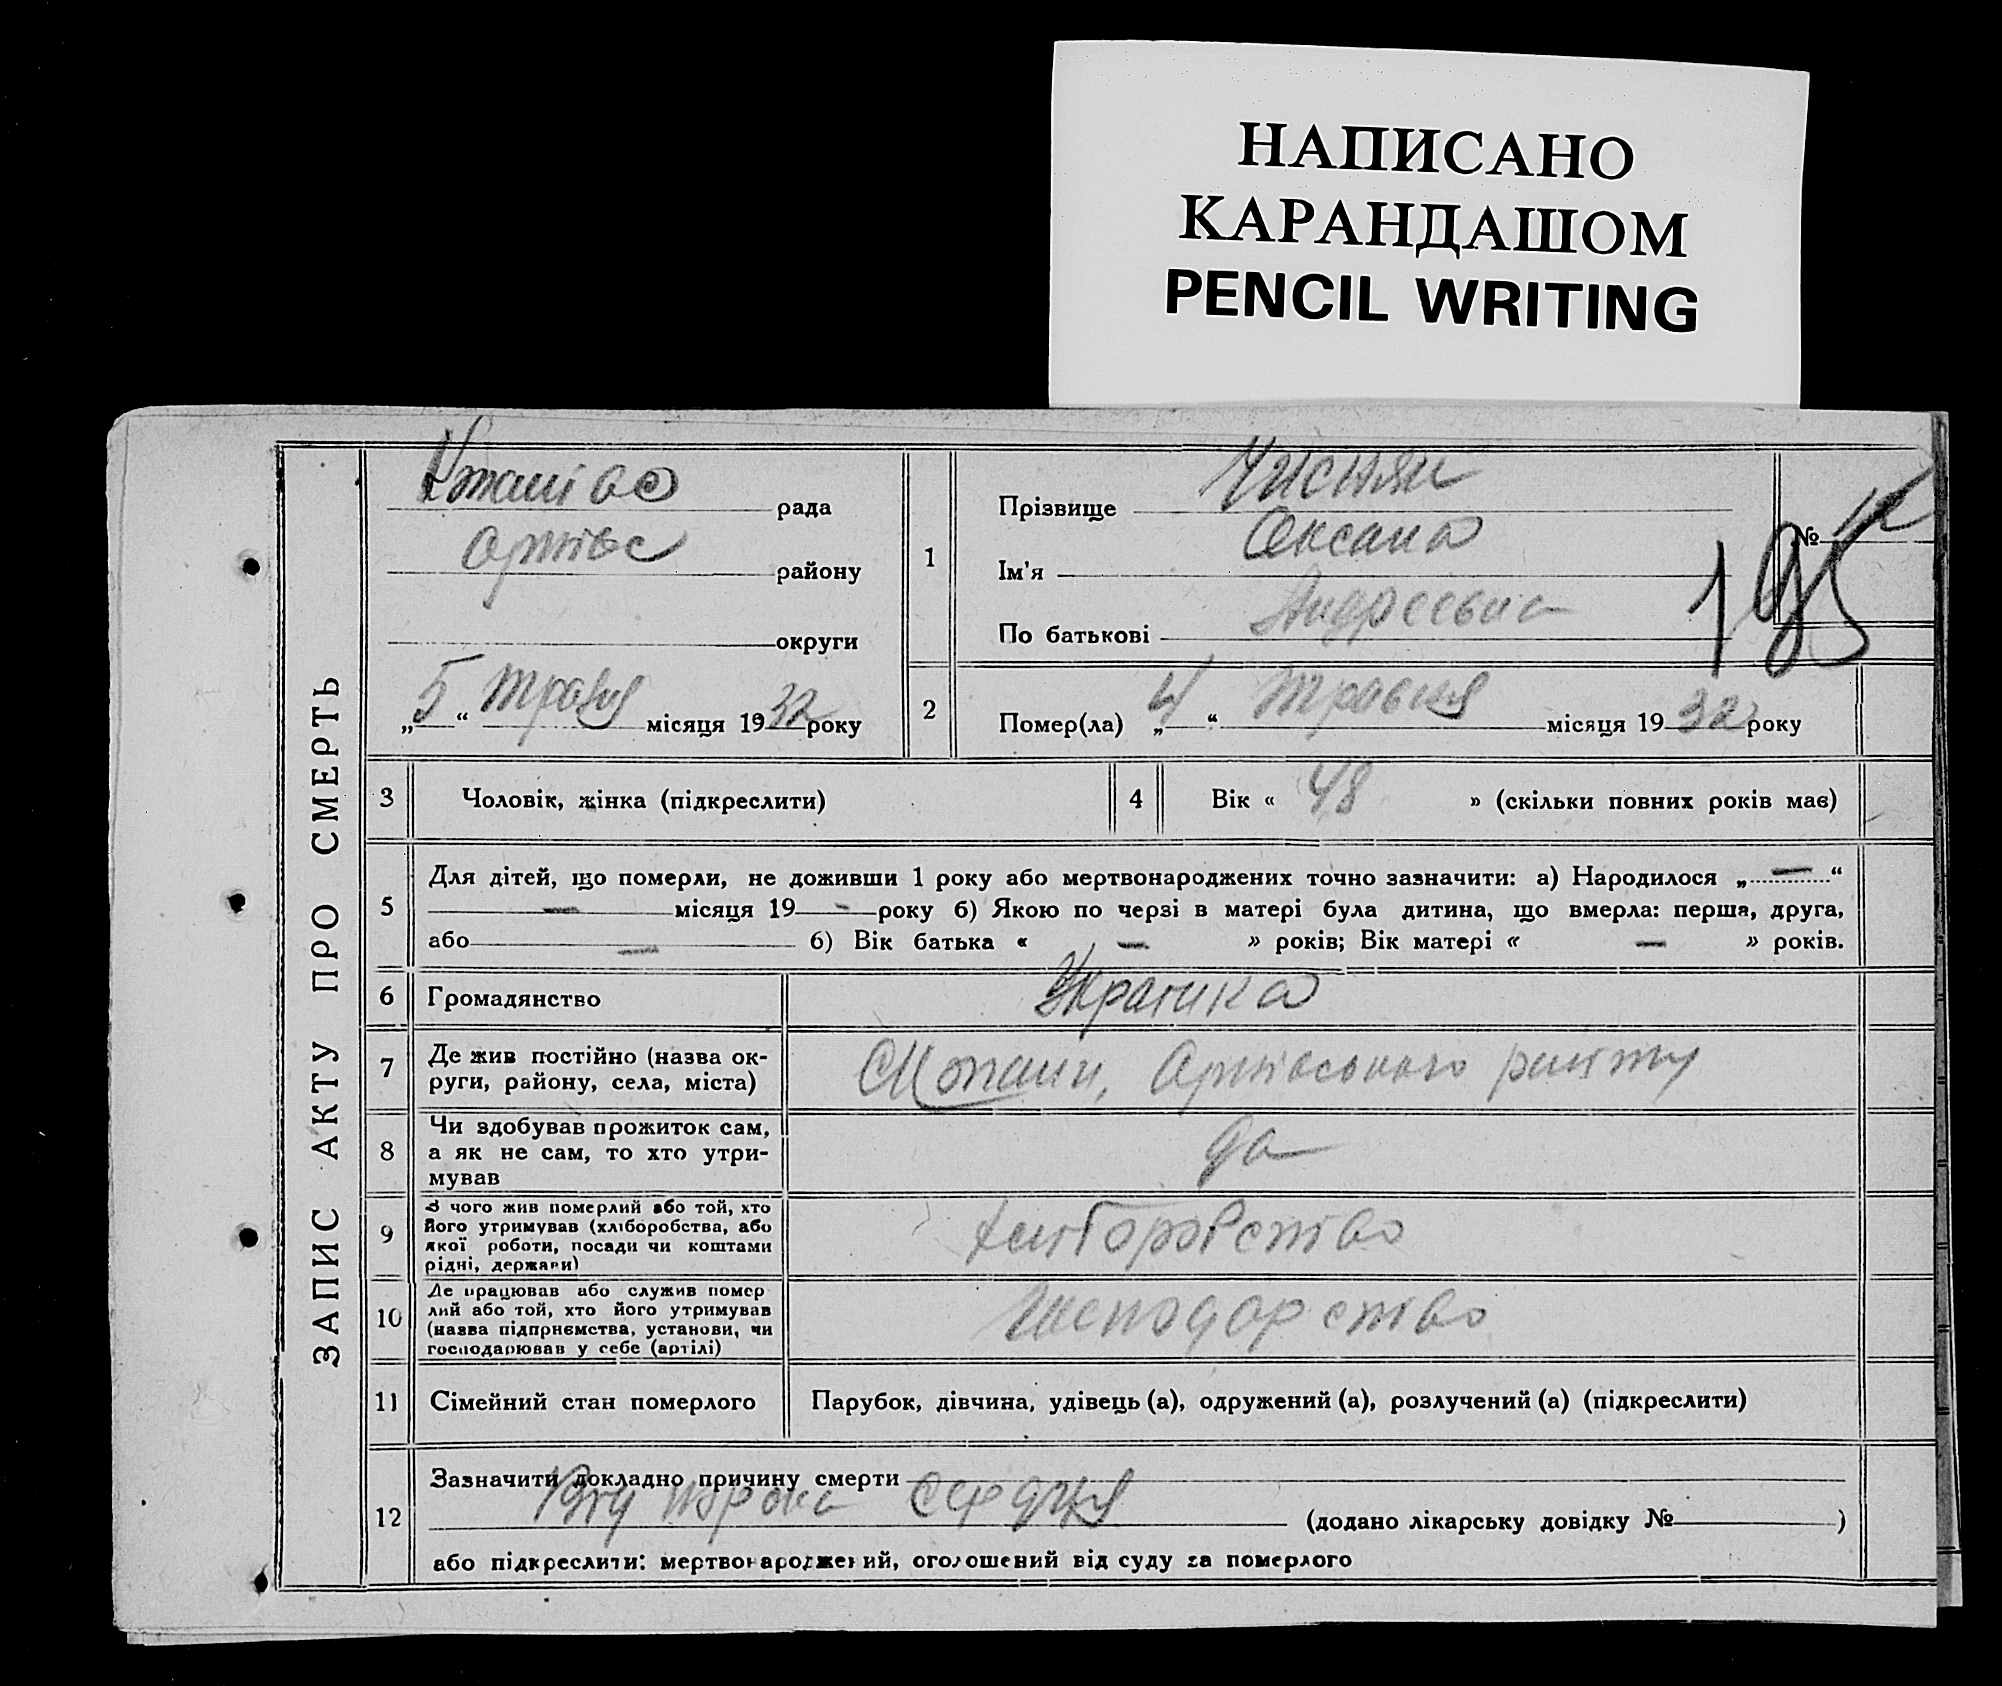 НАПИСАНО
КАРАНДАШОМ
PENCIL WRITING
ЗАПИС АКТУ ПРО СМЕРТЬ
рада
району
округи
„5“ місяця 1932 року
1
Прізвище
Ім'я Оксана
По батькові Андреевна
№
195
2
Помер(ла) „4“ травня місяця 1932 року
3 Чоловік, жінка (підкреслити)
4 Вік « 48 » (скільки повних років має)
5
Для дітей, що померли, не доживши 1 року або мертвонароджених точно зазначити: а) Народилося „—“
— місяця 19 - року б) Якою по черзі в матері була дитина, що вмерла: перша, друга,
або — б) Вік батька « — » років; Вік матері « — » років.
6 Громадянство
7
Де жив постійно (назва ок-
руги, району, села, міста)
8
Чи здобував прожиток сам,
а як не сам, то хто утри-
мував
да
9
З чого жив померлий або той, хто
його утримував (хліборобства, або
якої роботи, посади чи коштами
рідні, держави)
10
Де працював або служив помер
лий або той, хто його утримував
(назва підприємства, установи, чи
господарював у себе (артілі)
11 Сімейний стан померлого Парубок, дівчина, удівець (а), одружений (а), розлучений (а) (підкреслити)
12
Зазначити докладно причину смерти
сердця (додано лікарську довідку № )
або підкреслити: мертвонароджений, оголошений від суду за померлого